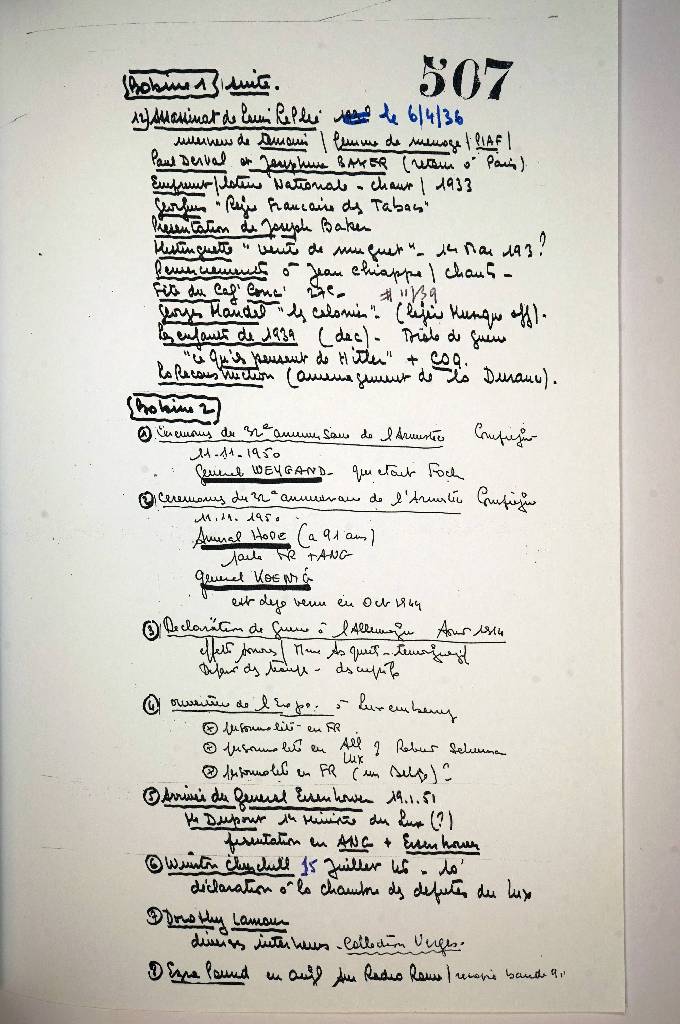 507
Bobine 1 suite.
12) Assassinat de Louis Leplée le 6/4/36
interview de témoins / femme de ménage / PIAF /
Paul Derval et Joséphine BAKER (retour à Paris)
Emprunt / loterie Nationale - chant / 1933
Georgius "Régie Francaise des Tabacs"
Présentation de Joseph. Baker
Mistinguette "vente de muguet" - 1er Mai 193?
Remerciements à Jean Chiappe / chants -
Fête du Caf' Conc' # 11/39
Georges Mandel "les colonies". (légère musique off).
Les enfants de 1939 (dec) - Drôle de guerre
"ce qu'ils pensent de Hitler" + COQ.
La Reconstruction (amenagement de la Durance).
Bobine 2
① Ceremonies du 32e anniversaire de l'Armistice Compiègne
11-11-1950
General WEYGAND - qui était Foch
② Ceremonies du 32e anniversaire de l'Armistice Compiègne
11.11.1950
Amiral HOPE (a 91 ans)
parle FR + ANG
General KOENIG
est deja venu en Oct 1944
③ Declaration de Guerre à l'Allemagne Aout 1914
effets sonores / Mme Asquith - temoignage
Defaut des temps - des
④ ouverture de l'Expo. à Luxembourg
personnalité en FR
personnalité en All ? Robert Schuman
Lux
personnalité en FR (un Belge) ?
⑤ Arrivée du General Eisenhower 19.1.51
Mr Dupont 1er Ministre du Lux (?)
presentation en ANG + Eisenhower
⑥ Winston Churchill 15 Juillet 46 - 10'
déclaration à la chambre des deputés du Lux
⑦ Dorothy Lamour
diverses interviews - Collection Verges.
⑧ Ezra Pound en avril sur Radio Rome / recopié bande 9